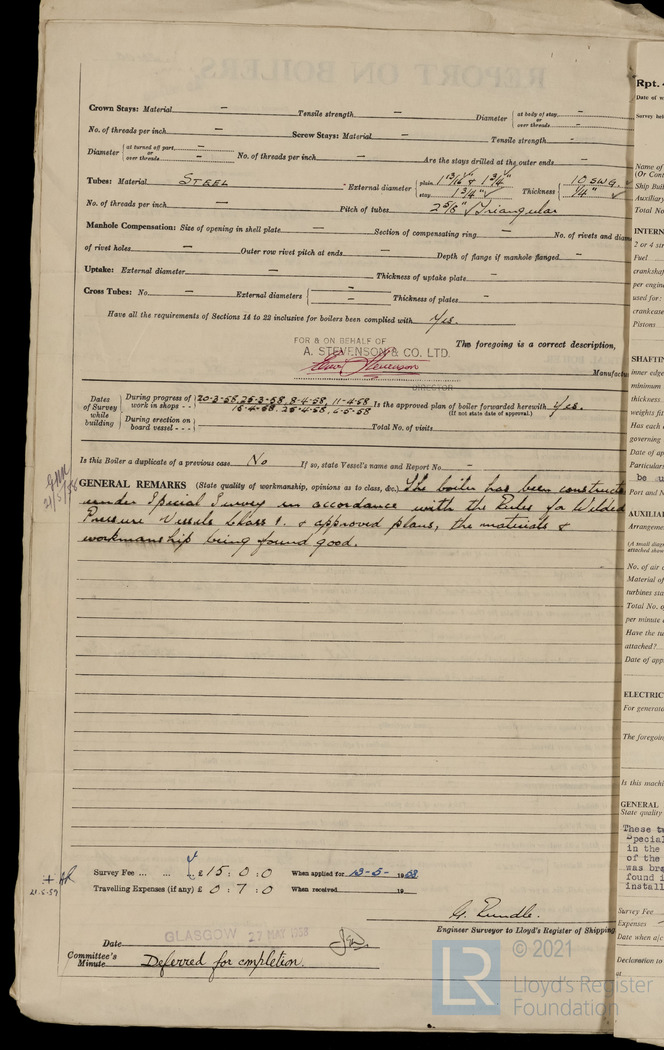 Crown Stays: Material — Tensile strength — Diameter { at body of stay, — or over threads —
No. of threads per inch — Screw Stays: Material — Tensile strength —
Diameter { at turned off part, — or over threads — No. of threads per inch — Are the stays drilled at the outer ends —
Tubes: Material STEEL External diameter { plain 1 13/16" & 1 3/4" stay 1 3/4" Thickness { 10 SWG. 1/4"
No. of threads per inch — Pitch of tubes 2 5/8" Triangular
Manhole Compensation: Size of opening in shell plate — Section of compensating ring — No. of rivets and diam
of rivet holes — Outer row rivet pitch at ends — Depth of flange if manhole flanged —
Uptake: External diameter — Thickness of uptake plate —
Cross Tubes: No. — External diameters { — — Thickness of plates —
Have all the requirements of Sections 14 to 22 inclusive for boilers been complied with Yes.
FOR & ON BEHALF OF
A. STEVENSON & CO. LTD.
The foregoing is a correct description,
Stevenson
DIRECTOR
Manufactu
Dates of Survey while building { During progress of work in shops - - 20-3-58, 25-3-58, 8-4-58, 11-4-58 15-4-58, 25-4-58, 6-5-58 Is the approved plan of boiler forwarded herewith Yes.
(If not state date of approval.)
During erection on board vessel - - - Total No. of visits
Is this Boiler a duplicate of a previous case No If so, state Vessel's name and Report No. —
21/5/58
GENERAL REMARKS (State quality of workmanship, opinions as to class, &c.) The boiler has been constructe
under Special Survey in accordance with the Rules for Welded
Pressure Vessels Class 1. & approved plans, the materials &
workmanship being found good.
Survey Fee ... ... £15 : 0 : 0 When applied for 13-5- 1958
Travelling Expenses (if any) £ 0 : 7 : 0 When received 19
21.5.59
G. Rundle.
Engineer Surveyor to Lloyd's Register of Shipping
Date GLASGOW 27 MAY 1958
Committee's Minute Deferred for completion.
LR © 2021
Lloyd's Register
Foundation
Rpt.
Date of w
Survey hel
Name of
(Or Cont
Ship Buil
Auxiliary
Total No.
INTERN
2 or 4 str
Fuel
crankshaf
per engin
used for:
crankcase
Pistons
SHAFTIN
inner edge
minimum
thickness
weights fit
Has each
governing
Date of ap
Particular
be u
Port and N
AUXILIA
Arrangeme
(A small diagr
attached show
No. of air c
Material of
turbines sta
Total No. o
per minute
Have the tu
attached?
Date of app
ELECTRIC
For generato
The foregoin
Is this machin
GENERAL
State quality
These tw
Special
in the
of the
was bra
found i
install
Survey Fee
Expenses
Date when a/c
Declaration to
at